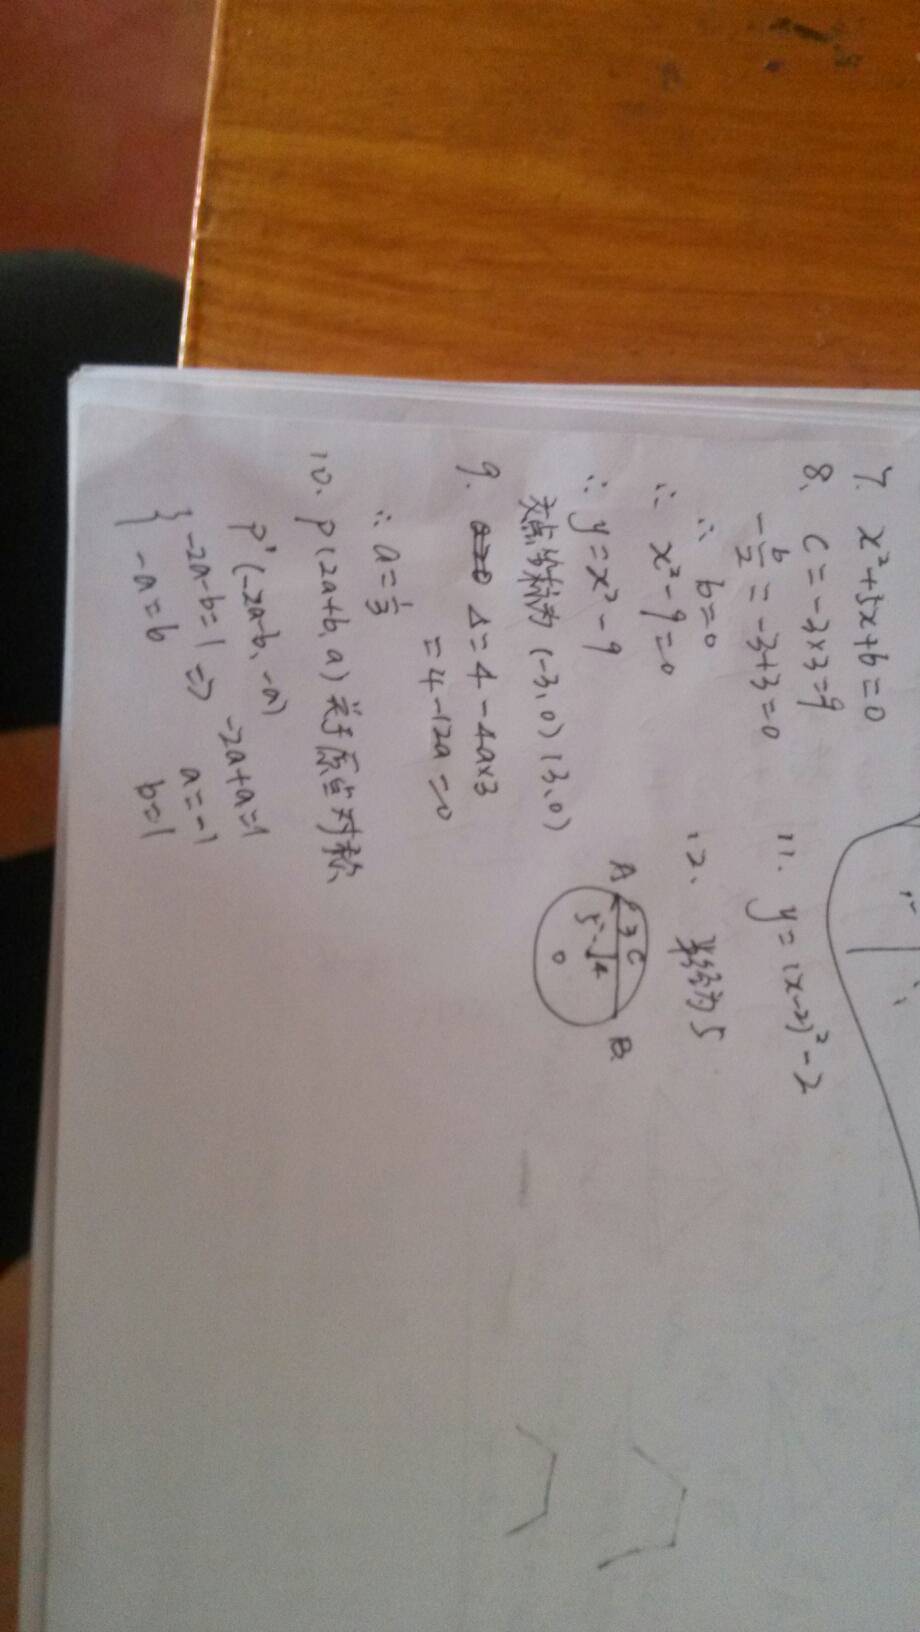 7. x²+5x+6=0
8、 c=-3×3=9
-b/2=-3+3=0
∴ b=0
∴ x²-9=0
∴ y=x²-9
交点坐标为(-3、0)(3、0)
9. Δ=4-4a×3
=4-12a=0
∴ a=1/3
10、P(2a+b、a)关于原点对称
P'(-2a-b、-a)
{ -2a-b=1 ⇒ -2a+a=1
-a=b a=-1
b=1
11. y=(x-2)²-2
12、 半径为5
A 3 C B
5 4
O